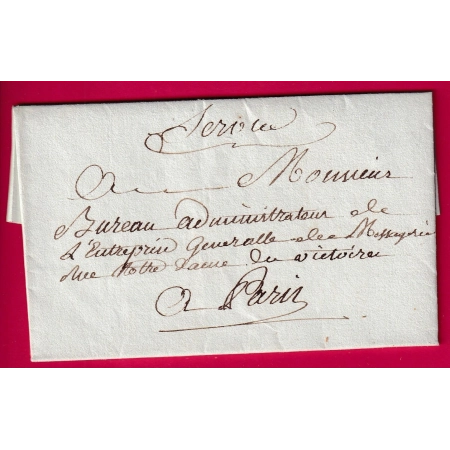 Service
A Monsieur
Bureau administrateur de
L'Entreprise Generalle des Messagerie
Rue Notre Dame du victoire
a Paris